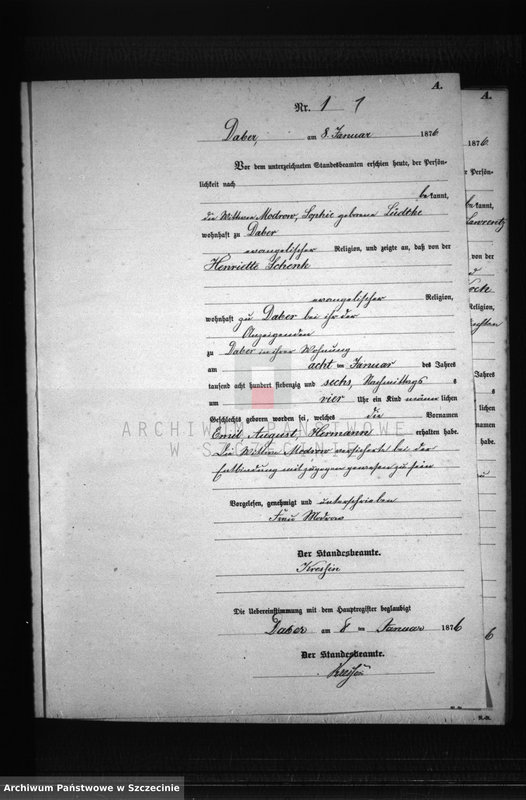 A.
Nr. 1 1
Daber, am 8. Januar 1876
Vor dem unterzeichneten Standesbeamten erschien heute, der Persön-
lichkeit nach
be kannt,
die Wittwe Modrow, Sophie geborene Lüdtke
wohnhaft zu Daber
evangelischer Religion, und zeigte an, daß von der
Henriette Schenk
evangelischer Religion,
wohnhaft zu Daber bei ihr der
Anzeigenden
zu Daber in ihrer Wohnung
am acht ten Januar des Jahres
tausend acht hundert siebenzig und sechs, Nachmittags s
um vier Uhr ein Kind männ lichen
Geschlechts geboren worden sei, welches die Vornamen
Emil August, Hermann erhalten habe.
Die Wittwe Modrow versicherte bei der
Entbindung mit zugegen gewesen zu sein
Vorgelesen, genehmigt und unterschrieben
Frau Modrow
Der Standesbeamte.
Die Uebereinstimmung mit dem Hauptregister beglaubigt
Daber am 8 ten Januar 1876
Der Standesbeamte.
A.
1876
r Persön-
be kannt,
von der
Religion,
Jahres
s
lichen
rnamen
habe.
6
N.-St.
ARCHIWUM PAŃSTWOWE
W SZCZECINIE
Archiwum Państwowe w Szczecinie